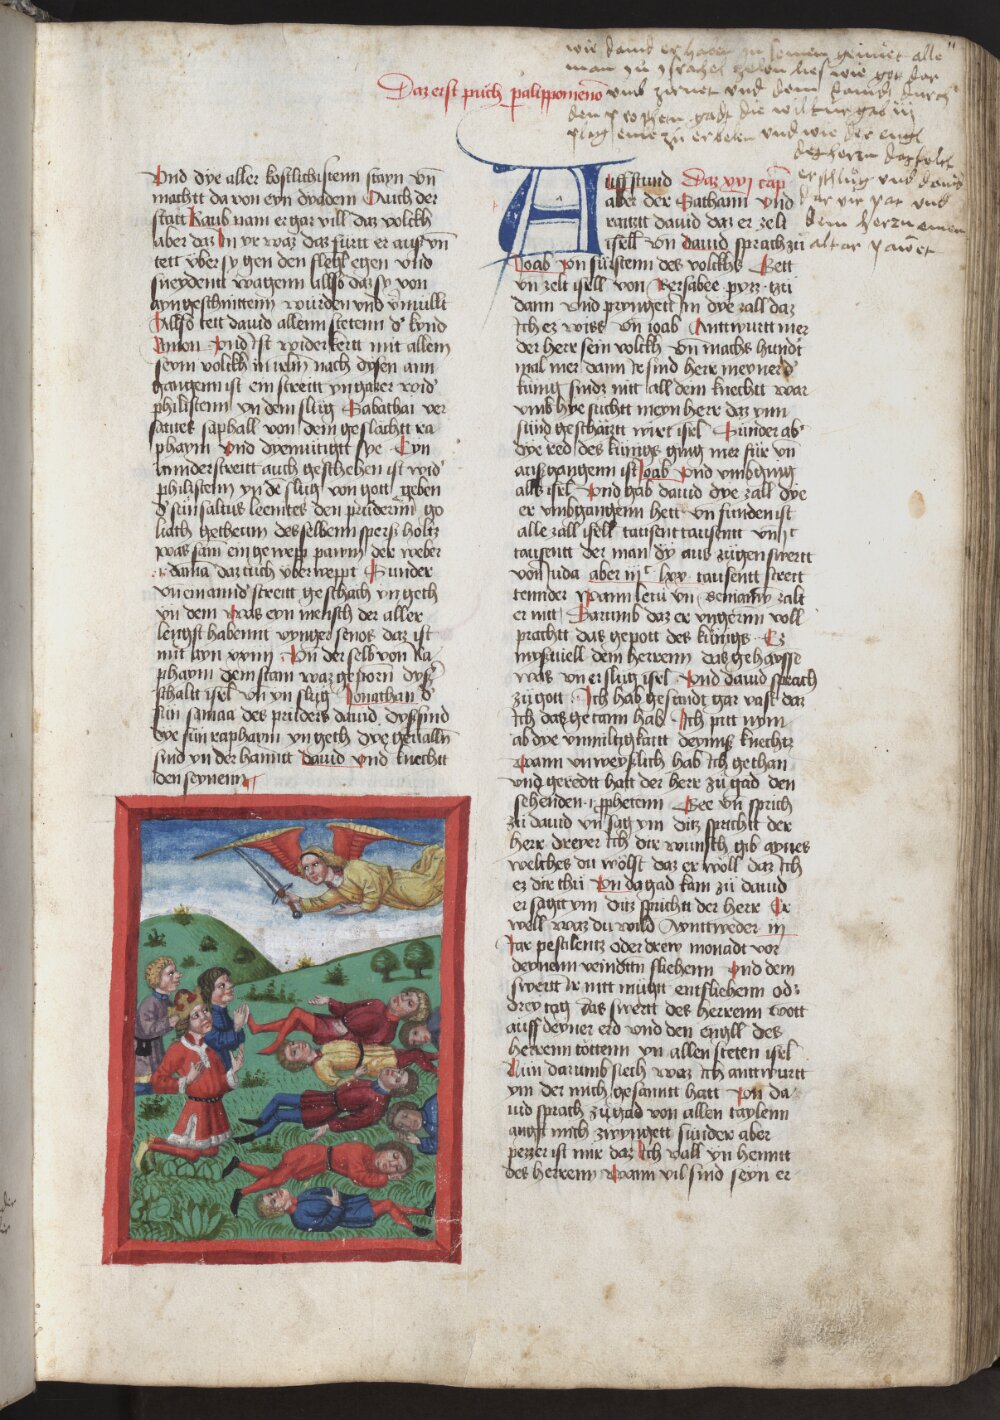 wie dauid erhaben in seinem gemuet alle
man in israhel zelen lies wie got dar
Daz erst puch paralippomeno
umb zurnet und dem dauidt durch
den prophen gadt die wil tur gab iij
plag eine zu erkein und wie der engl
des herrn das folck
erschlug und dauid
dem herrn einen
altar pawet
Vnd dye aller kostlichistenn stayn vn̄
machtt da von eyn dyadem Auch der
statt Raub nam er gar vill daz volckh
aber daz In yr waz daz fürtt er aus vn̄
tett vber sy gen den slegl egen vnd
sneydentt wagenn allso daz sy von
ayn geschnittenn wurden vnd
Allso tett dauid allenn stetenn d kynd
Amon Vnd ist wider kertt mit allem
seym volckh in irlm nach dysen ann
hangenn ist ein streitt yn gazer wid
philistenn yn dem slug Sabathai
saphall von dem geslächtt ra
phaym vnd dyemuttigtt sye Eyn
annder streitt auch geschehen ist wid
philistenn yn de slug von gott geben
d sun saltus leemtes den pruder
liath getheum des selbenn spers holtz
was sam ein gewepp pawm der weber
daz tuch vber weppt Sunder
vnemannd streitt geschach yn geth
yn dem was eyn mensch der aller
lengst habenntt vynger senos daz ist
mit ayn xxiiij Vn der selb von Ra
phaym dem stam waz geporn
schaltt isel vn yn slug Jonathan d
sun samaa des pruders dauid dyss sind
dye sün raphaym yn geth dye geualln̄
sind yn der hanntt dauid vnd knechtt
den seynenn
Auff stund Daz xxj cap
aber der Sathann vnd
raitztt dauid daz er zelt
isell vn dauid sprach zü
Joab vn fürstenn des volckhs Gett
vn zelt isell von Bersabee pyzz tzü
dann vnd pryngett in dye zall daz
Ich ez wiss vn ioab Anttwurtt mer
der herr sein volckh vn machs hundt
mal mer dann ir sind herr meyner
künig sindz nitt all dein knechtt war
vmb hye suchtt meyn herr daz ynn
sünd geschäztt wirt isel Sünder ab
dye red des künigs ging mer für vn
aussgangenn ist Joab vnd vmbging
alls isel Vnd gab dauid dye zall dye
er vmbgangenn hett vn funden ist
alle zall isell tausentt tausentt vn c
tausentt der man dy aus zügen swertt
von Juda aber iiic lxx tausentt streit
tennder Wann leui vn Beniamyn zalt
er nitt Darumb daz er vngernn voll
prachtt das gepott des künigs Ez
mysuiell dem herrenn das gehaysse
was vn er slug isel Vnd dauid sprach
zü gott Ich hab gesündt gar vast daz
Ich das getann hab Ich pitt nym
ab dye vnmiltigkaitt deynes knechtz
Wann vnweysslich hab Ich gethan
vnd geredtt hatt der herr zü gad den
sehenden phetenn Gee vn sprich
zü dauid vn sag ym ditz sprichtt der
herr dreyer Ich dir wunsch gib aynes
welches du wölst daz er wöll daz Ich
ez dir thü Vn da gad kam zü dauid
er sagtt ym ditz sprichtt der herr Er
well waz du wild Anttweder iij
Jar pestilentz oder drew monadt vor
deynenn veindttn fliehenn Vnd dem
swertt ir nitt mügtt entfliehenn od
drey tag das swertt des herrenn tött
auff deyner erd vnd den engll des
herrenn töttenn yn allen steten isel
Nun darumb siech waz Ich anttwurtt
ym der mich gesanntt hatt Vn da
uid sprach zü gad von allen taylenn
angst mich zwyngett sünder aber
pezzer ist mir daz Ich vall yn henntt
des herrenn Wann vil sind seyn er